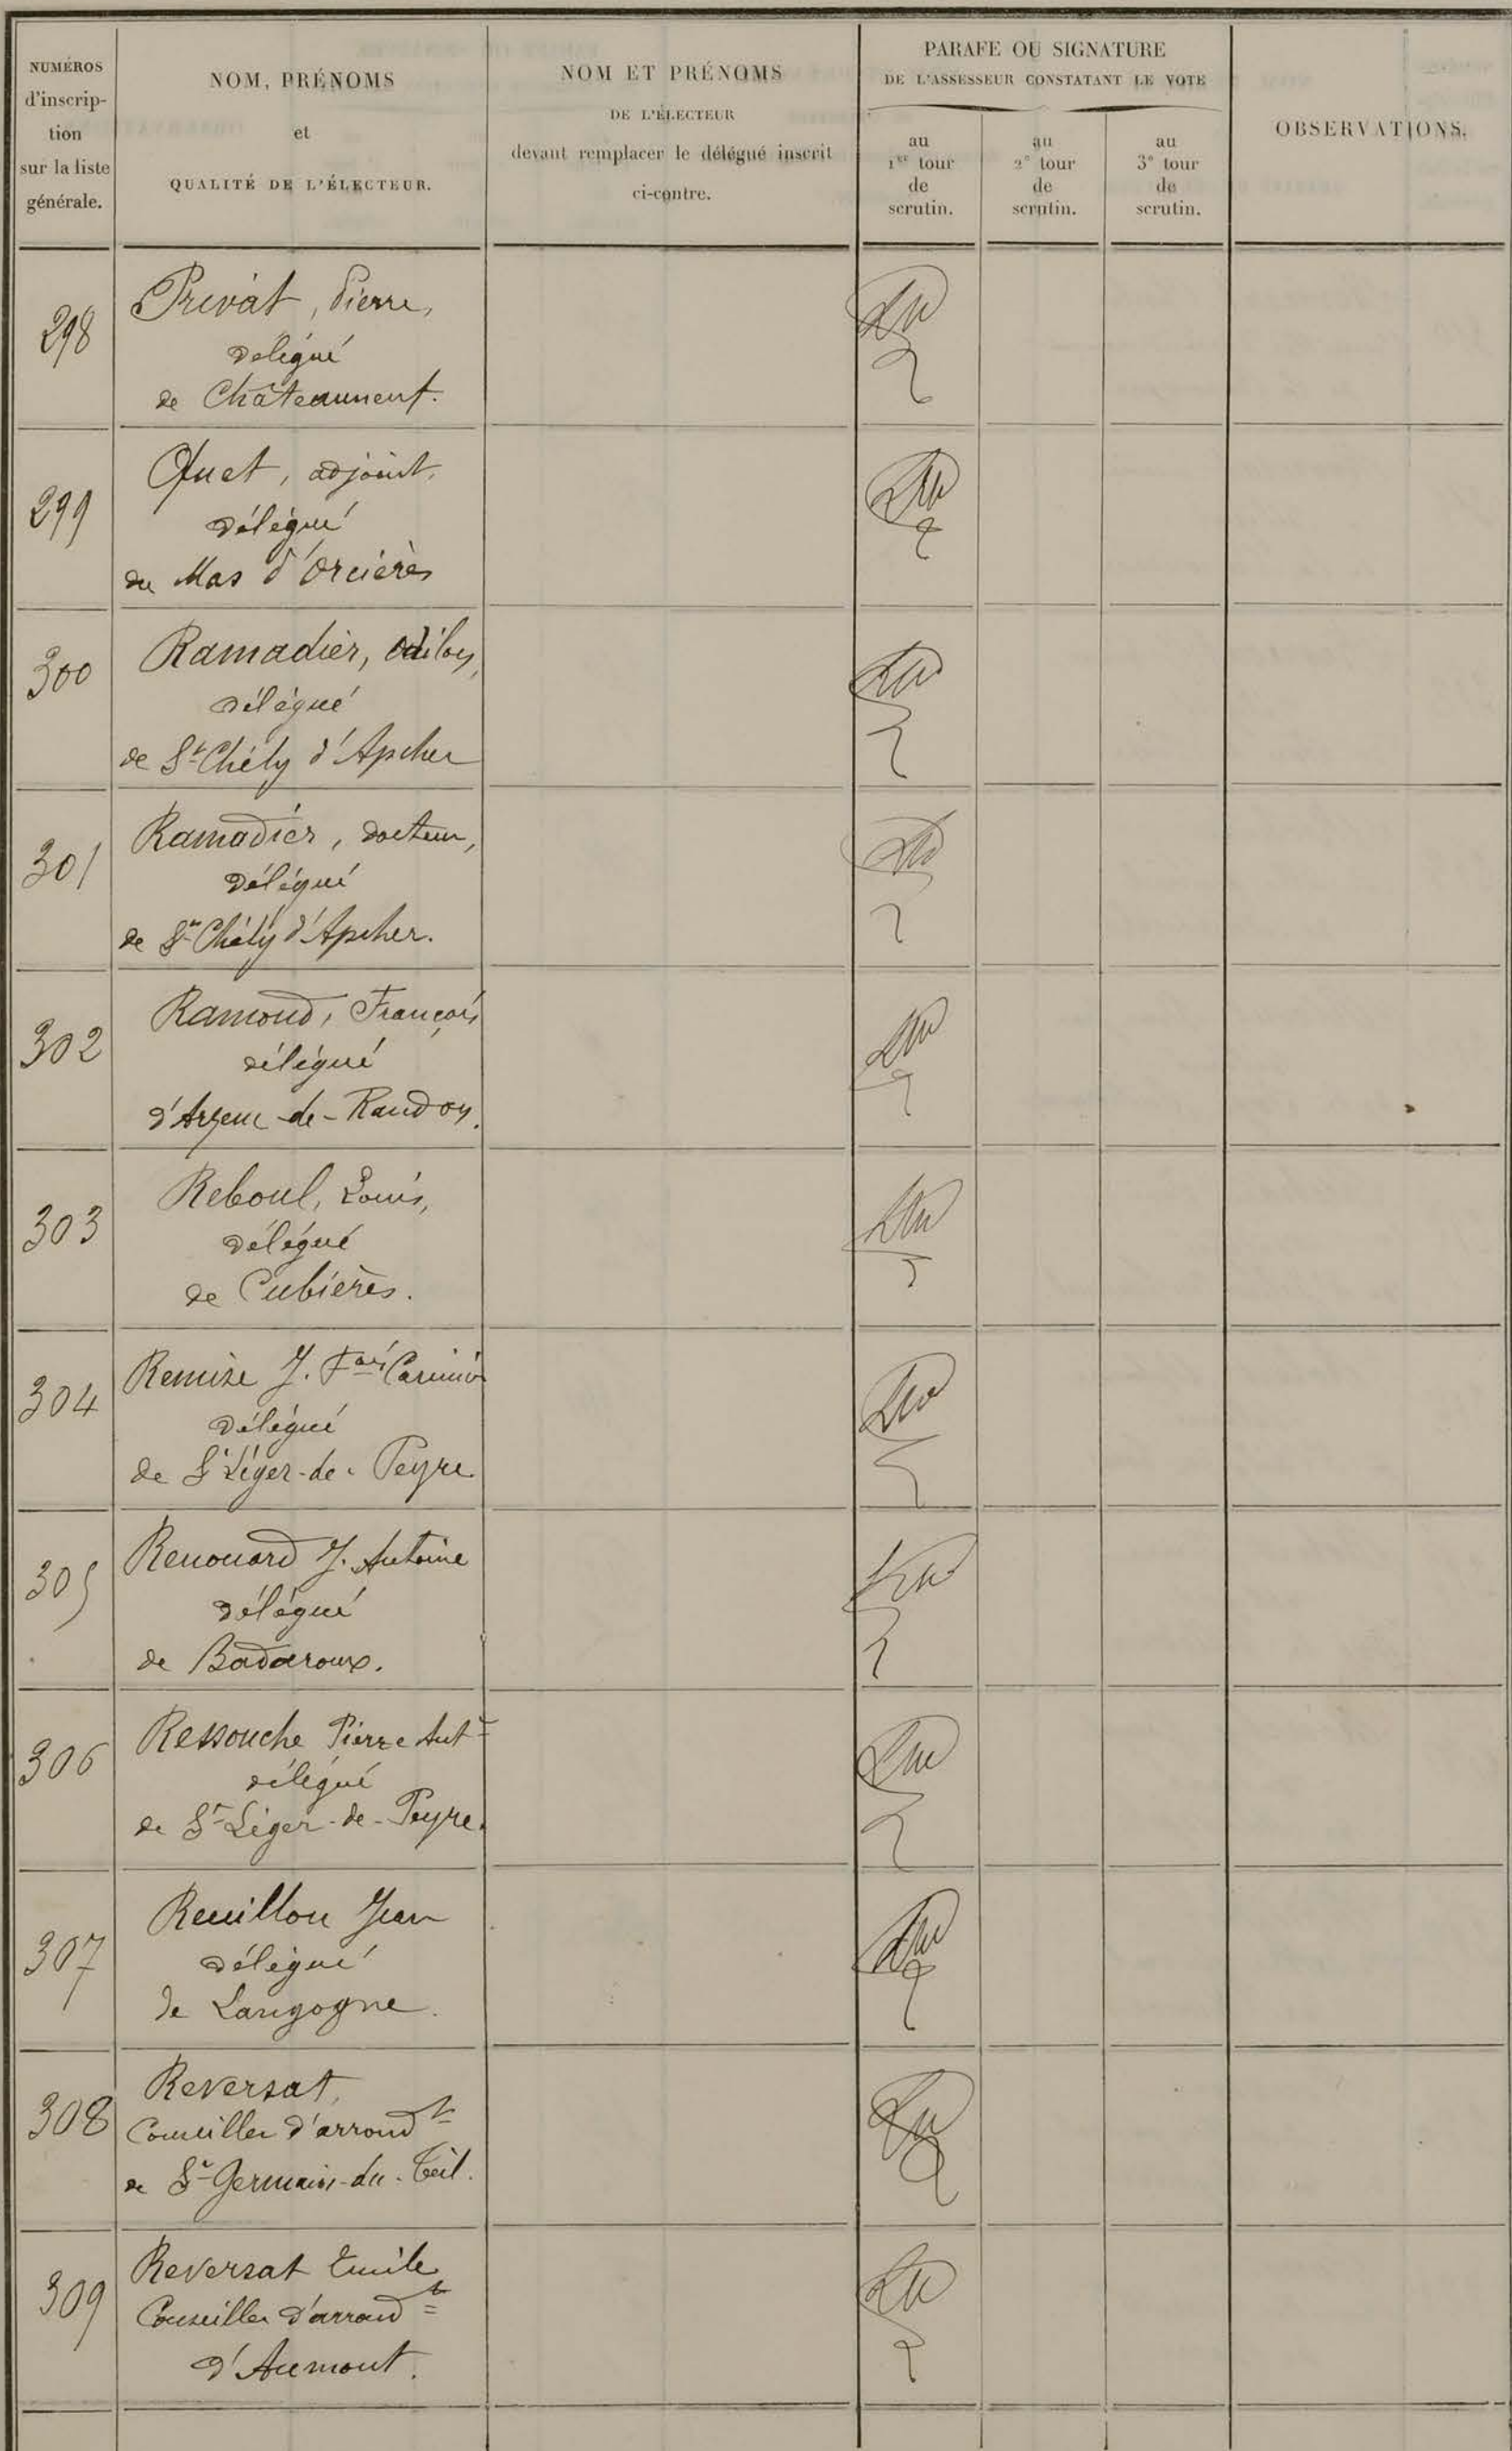 NUMÉROS
d'inscrip-
tion
sur la liste
générale.
NOM, PRÉNOMS
et
QUALITÉ DE L'ÉLECTEUR.
NOM ET PRÉNOMS
DE L'ÉLECTEUR
devant remplacer le délégué inscrit
ci-contre.
PARAFE OU SIGNATURE
DE L'ASSESSEUR CONSTATANT LE VOTE
au
1er tour
de
scrutin.
au
2e tour
de
scrutin.
au
3e tour
de
scrutin.
OBSERVATIONS.
298
Privat, Pierre,
délégué
de Châteauneuf.
299
Quet, adjoint,
délégué
du Mas d'Orcières
300
Ramadier, Odilon,
délégué
de St Chély d'Apcher
301
Ramadier, docteur,
délégué
de St Chély d'Apcher.
302
Ramond, François
délégué
d'Arzenc-de-Randon.
303
Reboul, Louis,
délégué
de Cubières.
304
Remize J. Fois Casimir
délégué
de St Léger-de-Peyre
305
Renouard J. Antoine
délégué
de Badaroux.
306
Ressouche Pierre Ant
délégué
de St Léger-de-Peyre.
307
Reuillon Jean
délégué
de Langogne.
308
Reversat,
Conseiller d'arrondt
de St Germain-du-Teil.
309
Reversat Emile
Conseiller d'arrondt
d'Aumont.